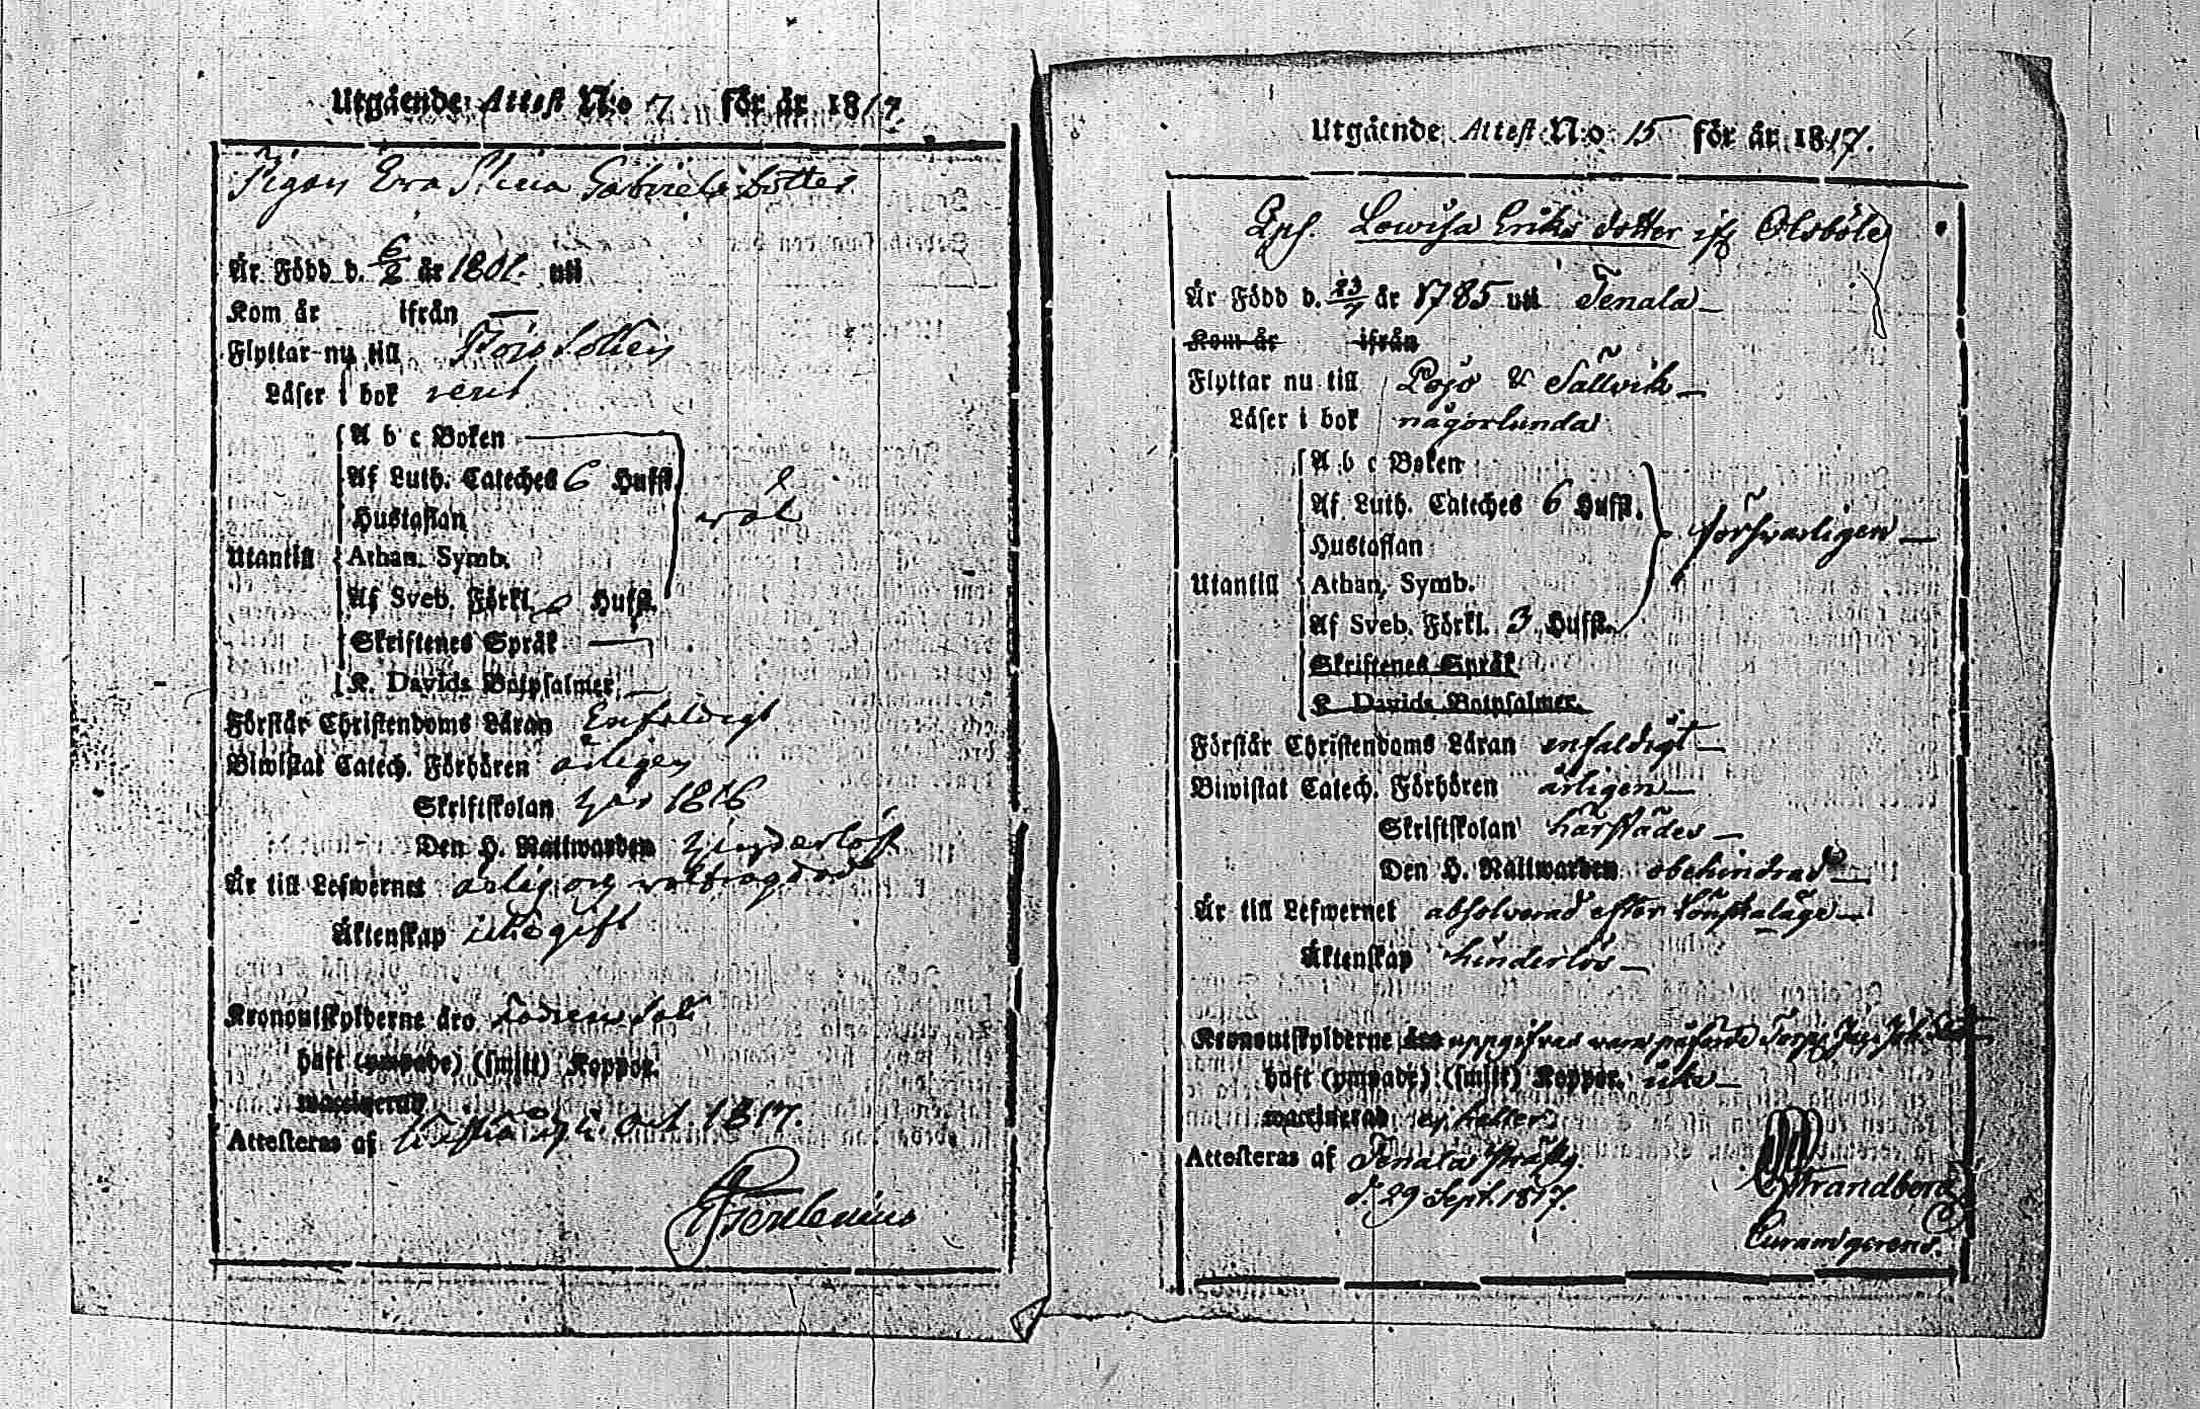 Utgående Attest N:o 7 för år 1817.
Pigan Ewa Stina Gabriels dotter
Är Född d. 6/2 år 1801. uti
Kom år ifrån —
Flyttar nu till Pojo Sokn
Läser i bok rent
A b c Boken
Af Luth. Cateches 6 Hufst.
Hustaflan
wäl
Utantill Athan. Symb.
Af Sveb. Förkl. Hufst.
Skriftenes Språk —
K. Davids Botpsalmer —
Förstår Christendoms Läran Enfaldigt
Biwistat Catech. Förhören årligen
Skriftskolan här 1816
Den H. Nattwarden hinderlöst
Är till Lefwernet ärlig och
Äktenskap icke gift
Kronoutskylderne äro
haft (ympade) (smitt) Koppor.
waccinerad
Attesteras af Oct. 1817.
Utgående Attest N:o 15 för år 1817.
Lowisa Eriks dotter ifr Olsböle
Är Född d. 23/7 år 1785 uti Tenala —
Kom år ifrån
Flyttar nu till Pojo & Sällvik —
Läser i bok någorlunda
A b c Boken
Af Luth. Cateches 6 Hufst.
Hustaflan
försvarligen —
Utantill Athan. Symb.
Af Sveb. Förkl. 3 Hufst.
Skriftenes Språk
K. Davids Botpsalmer.
Förstår Christendoms Läran enfaldigt —
Biwistat Catech. Förhören årligen —
Skriftskolan härstädes —
Den H. Nattwarden obehindrad —
Är till Lefwernet absolverad efter Lönskaläge —
Äktenskap hinderlös —
Kronoutskylderne äro uppgifves vara påförde
haft (ympade) (smitt) Koppor. icke —
waccinerad ej heller
Attesteras af Tenala
d. 29 Sept. 1817.
Strandberg
Curam gerens.